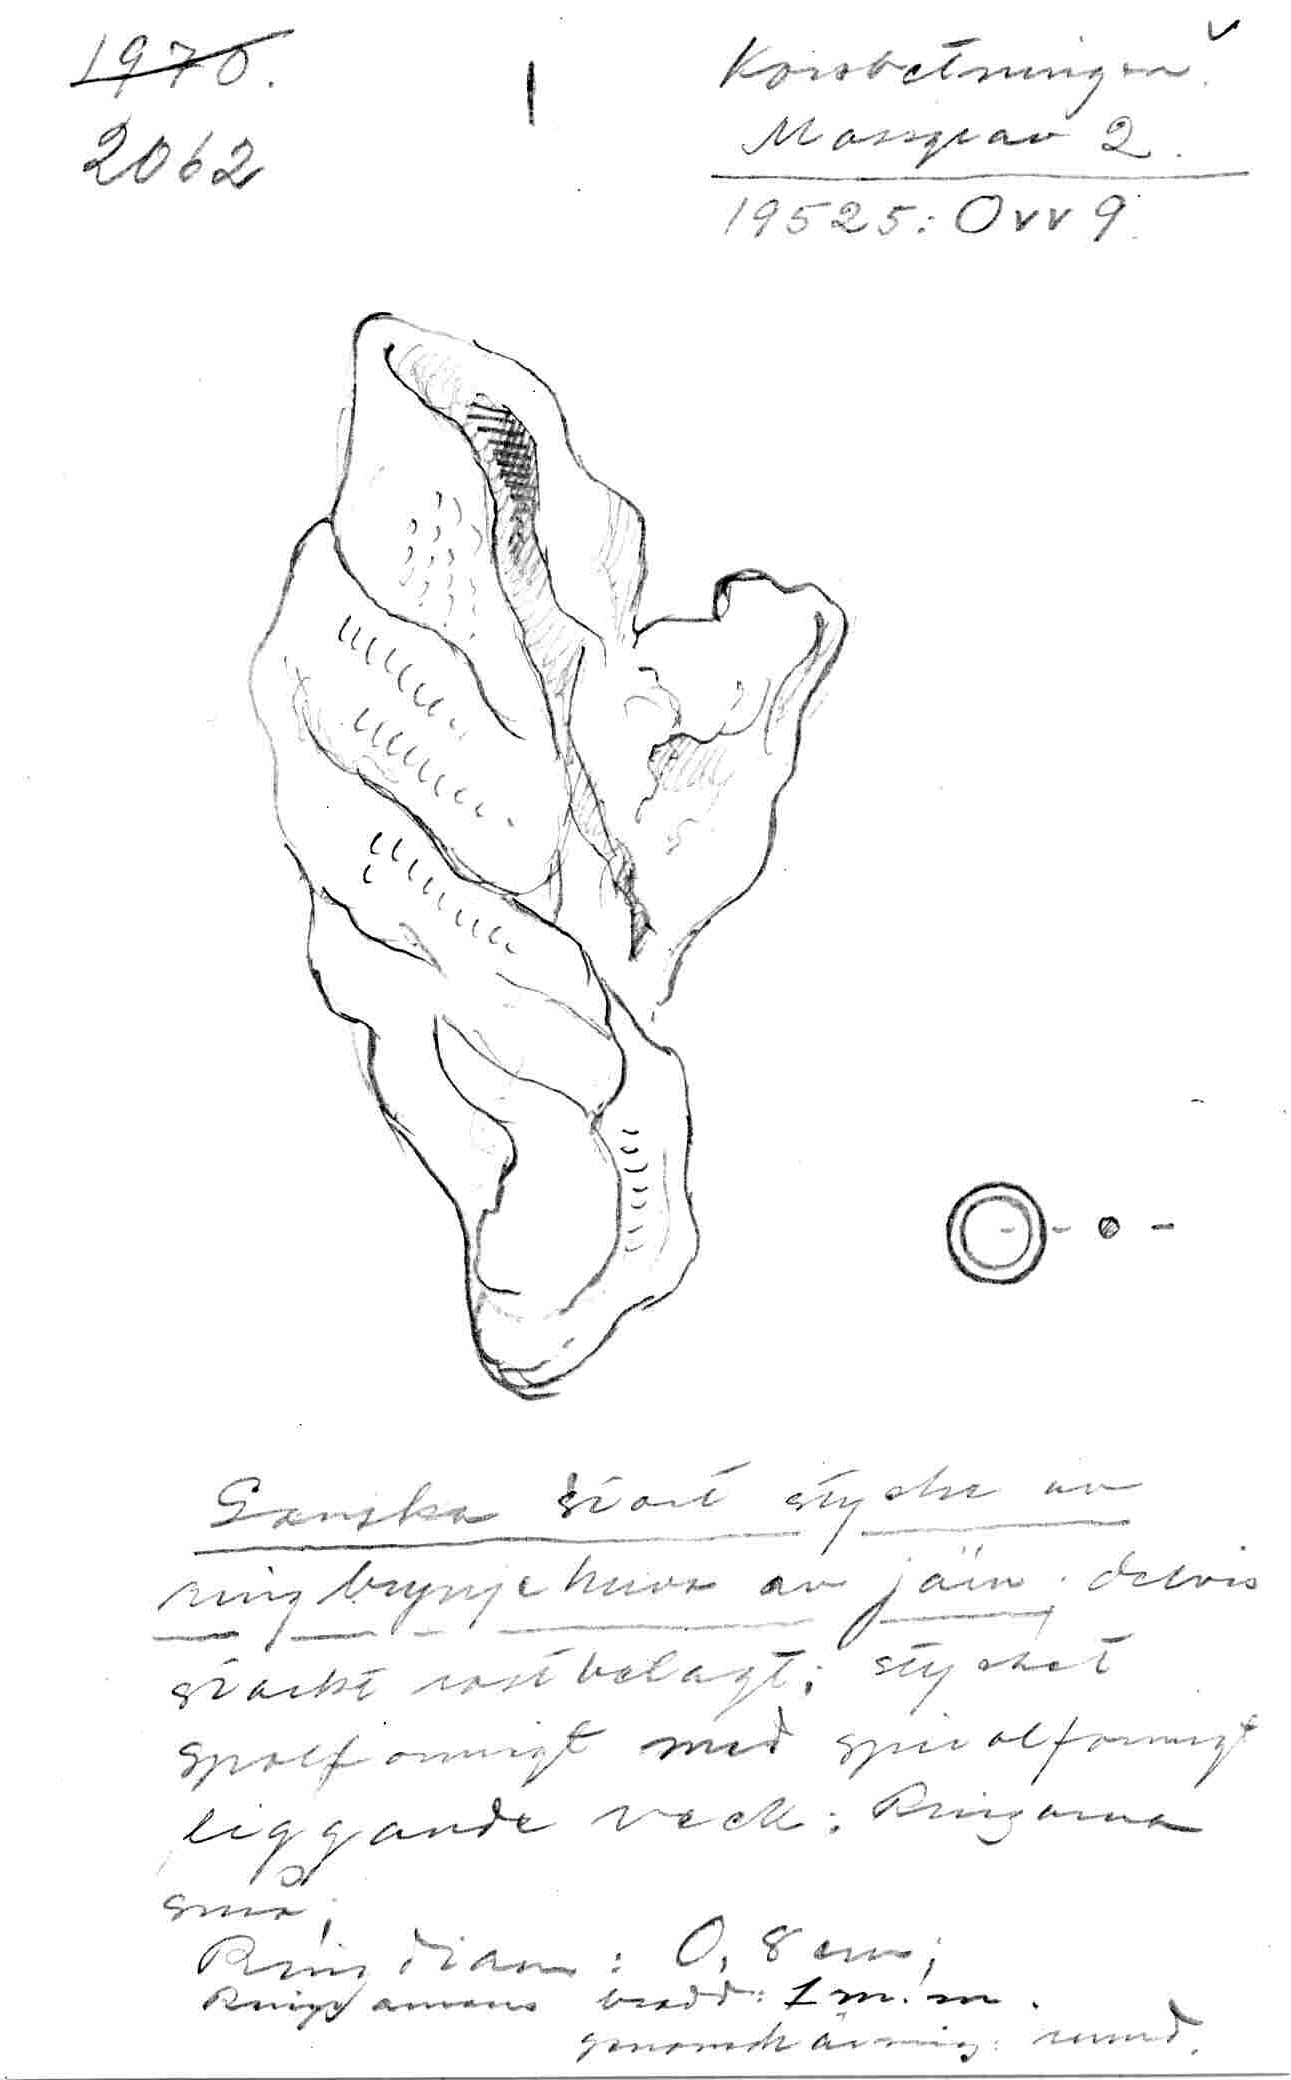 1970.
2062
Korsbetningen
Massgrav 2.
19525: Ovv 9.
Ganska stort stycke av
ringbrynjehuva av järn. delvis
starkt rostbelagt; stycket
spolformigt med spiralformigt
liggande veck; Ringarna
små;
Ring diam: 0,8 cm;
bredd: 1 m.m.
genomskärning: rund.